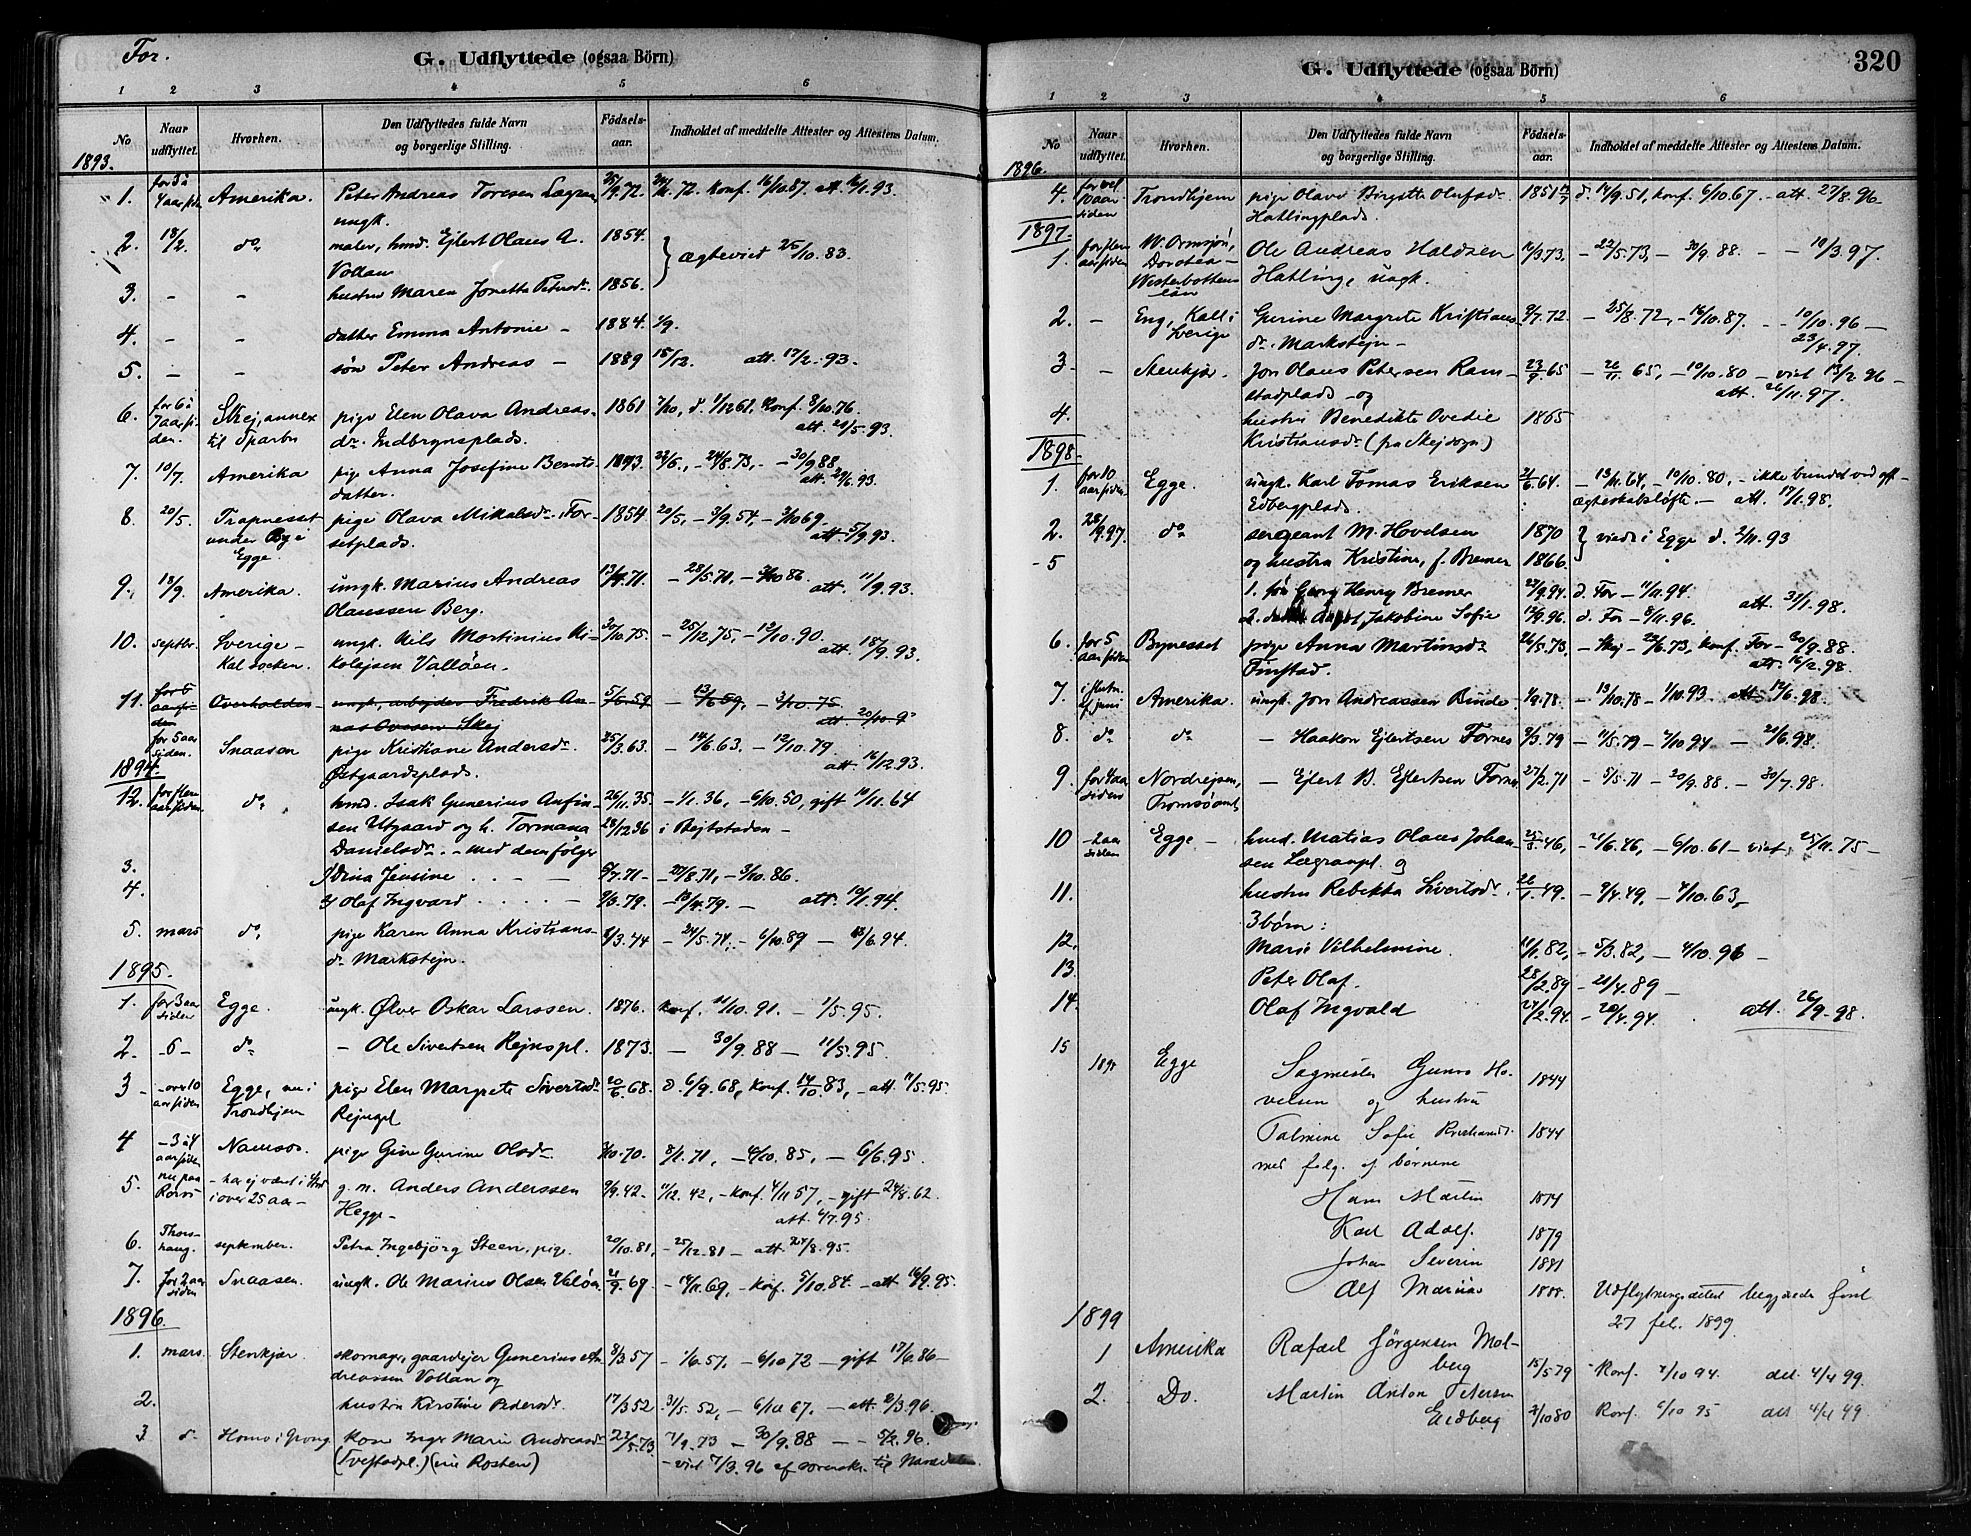 For.
G. Udflyttede (ogsaa Börn)
1 2 3 4 5 6
No Naar udflyttet. Hvorhen. Den Udflyttedes fulde Navn og borgerlige Stilling. Fødsels-aar. Indholdet af meddelte Attester og Attestens Datum.
1893.
1. for 3 à 4 aar siden Amerika. Peter Andreas Toresen 25/9 72. Konf. 16/10 87. att. 93.
ungk.
2. 18/2. do maler, hmd. Ejlert Olaus A. 1854.
Vollan } ægteviet 25/10 83.
3. - - hustru Maren Jonetta Petersdr. 1856.
4. - - datter Emma Antonie - 1884. 1/9.
5. - - søn Peter Andreas - 1889 15/12. att. 17/2. 93.
6. for 6 à 7 aar siden. Skej, annex pige Elen Olava Andreas- 1861 7/10, d. 1/12 61, Konf. 8/10 76.
til Sparbu dr. Indbrynsplads. att. 20/5. 93.
7. 10/7. Amerika pig Anna Josefine Bernts- 1873. 22/6., - 24/8. 73, - 30/9 88
datter. att. 29/6. 93.
8. 20/5. Trapnesset pige Olava Mikalsdr. For- 1854 20/5, - 3/9. 54, - 3/10 69
under By i setplads. att. 5/9. 93.
Egge.
9. 13/9. Amerika. ungk. Marius Andreas 13/4. 71. - 28/5. 71, - 86. att. 11/9. 93.
Olaussen Berg.
10. septbr. Sverige - ungk. Nils Martinius Ni- 30/10. 75. - 25/12. 75, - 12/10. 90.
Kal Socken. kolejsen Valløen. att. 18/9. 93.
11. for 6 aar siden Overhalden ungk. arbejder Fredrik An- 5/6 59 - 13/6 59, - 3/10 75
nas Ovesen Skej att 20/10 9
for 5 aar siden. Snaasen pige Kristiane Andersdr. 25/3. 63. - 14/6. 63. - 12/10. 79
Østgaardsplads. att. 16/12. 93.
1894.
12. for flere aar siden. do. hmd. Isak Gunerius Anfin- 26/11. 35. - 1/1. 36, - 6/10. 50, gift 10/11. 64
sen Utgaard og h. Tormana 28/12 36 i Bejtstaden -
Danielsdr. - med dem følger
3. Idrina Jensine . . - 5/7. 71 - 27/8. 71, - 3/10. 86.
4. Olaf Ingvard . . . . - 9/3. 79. - 13/4. 79. - att. 10/1. 94.
5. mars do, pige Karen Anna Kristians- 8/3. 44 - 24/5. 74, - 6/10. 89 - 13/6. 94.
dr. Markstejn.
1895.
1. for 3 aar siden Egge. ungk. Ølver Oskar Larssen. 1876. Konf. 11/10. 91. - 1/5. 95.
2. - 6 - do - Ole Sivertsen Rejnspl. 1873. - 30/9. 88 - 11/5. 95.
3 - over 10 aar siden Egge, nu i pige Elen Margrete Sivertsdr 20/6. 68. d. 6/9. 68, Konf. 14/10. 83, - att. 11/5. 95.
Trondhjem Rejnspl
4 - 3 à 4 aar siden Namsos. pige Gine Gurine Olsdr. 3/10. 70. 8/1. 71, - 4/10. 85, - 6/6. 95.
5. nu paa Rørvi - har ej været i
i over 25 aar - g. m. Anders Anderssen 9/9. 42. - 11/12. 42, - Konf. 4/11 57, - gift 24/8. 62
Hegge - att. 4/7. 95.
6. september. Petra Ingebjörg Steen, pige 20/10. 81, - 25/12. 81 - att. 24/8. 95.
7. for 2 aar siden Snaasen. ungk. Ole Marius Olsen Valöen 21/9. 69 - 14/11. 69, - Konf. 5/10. 84. - att. 16/9. 95.
1896.
1. mars. Stenkjær skomager, gaardejer Gunerius An 8/3. 57 - 1/6. 57, - 6/10 72 - gift 17/6. 86 -
dreassen Vollan og
2. hustru Kirstine Pedersdr. 17/3 52 31/5. 52, - 6/10 67, - att. 2/3. 96.
3 do. Homo i Grong Inger Marie Andreasdr. 23/5. 73. 7/9. 73 - 30/9. 88 - - 5/2. 96.
(Tveftadpl.) (nu Rosten) - viet 7/3. 96 af til
G. Udflyttede (ogsaa Börn) 320
1 2 3 4 5 6
No Naar udflyttet. Hvorhen. Den Udflyttedes fulde Navn og borgerlige Stilling. Fødsels-aar. Indholdet af meddelte Attester og Attestens Datum.
1896.
4. for vel 10 aar siden Trondhjem pige Olava Birgitte Olufsdr. 1851 d. 14/9. 51, konf. 6/10. 67. - att. 27/8. 96.
Hatlingplads.
1897.
1. for flere aar siden W. Ormsjön, Ole Andreas Haldsen 10/3 73. - 22/5. 73, - 30/9. 88. - - 10/3. 97.
Dorotea - Hatling, ungk.
Westerbottens
län
2. - Eng, Kall i Gurine Margrete Kristians- 9/7. 72. - 25/8. 72, - 16/10. 87. - - 10/10. 96 -
Sverige dr. Markstejn - 23/4. 97.
3 - Stenkjær. Jon Olaus Petersen Ram- 23/9. 65 - 26/11. 65, - 10/10. 80 - viet 13/2. 96 -
stadplads - og att. 26/11. 97.
4. hustru Benedikte Ovedie 1865
Kristiansdr. (fra Skejsogn)
1898.
1. for 10 aar siden Egge. ungk. Karl Tomas Eriksen 21/6. 64. - 13/11. 64, - 10/10. 80, - ikke bundet ved
Edbergplads. ægteskabsløfte - att. 17/1. 98.
2. 28/9. 97. do sergeant M. Hovelsen 1870 } viede i Egge d. 2/11. 93
- 5 og hustru Kristine, f. Bremer 1866.
1. søn Georg Henry Bremer 27/9. 94. d. For - 11/11. 94. att. 31/1. 98.
2. Jakobine Sofie 12/9. 96. d. For - 8/11. 96.
6. for 5 aar siden Bynesset pige Anna Martinsdr. 26/5. 73. - Skej - 22/6. 73, konf. For - 30/9. 88.
Finstad. att. 16/2. 98.
7. i slutn. af juni Amerika. ungk. Jon Andreassen Binde 1/9. 78. - 13/10. 78 - 1/10. 93 att 12/6. 98.
8. do do - Haakon Ejlertsen Fornes 9/3. 79 - 11/5. 79 - 7/10. 94 - 21/6. 98.
9. for 4 aar siden Nordrejsen, - Ejlert B. Ejlertsen Fornes 27/2. 71 - 5/5. 71 - 30/9. 88. - 30/7. 98.
Tromsöamt
10 - 2 aar siden Egge - hmd. Matias Olaus Johan- 25/3 46, - 1/6. 46, - 6/10. 61 - viet 25/11. 75 -
sen Lægranpl. og
11. hustru Rebekka Sivertsdr. 26/1. 49. - 9/4. 49. - 4/10. 63, -
3 børn:
12. Marie Vilhelmine. 11/1. 82, - 5/3. 82, - 4/10. 96 -
13. Peter Olaf. 28/2. 89 - 21/4. 89 -
14. Olaf Ingvald 24/2. 94. - 20/4. 94. att. 26/9. 98.
15 Egge Sagmester Ho- 1844
velsen og hustru
Talmine Sofie 1844
med følg. af børnene
Hans Martin 1874
Karl Adolf 1879
Johan Severin 1881
Alf Marius Udflytningsattest begjæredes
27 feb. 1899
1899
1 Amerika Rafael Jørgensen Mol-
berg 15/5 79 - Konf. 7/10 94. att. 4/4 99.
2. Do. Martin Anton Petersen
Eidberg 2/10 80 Konf. 6/10 95 att 4/4 99